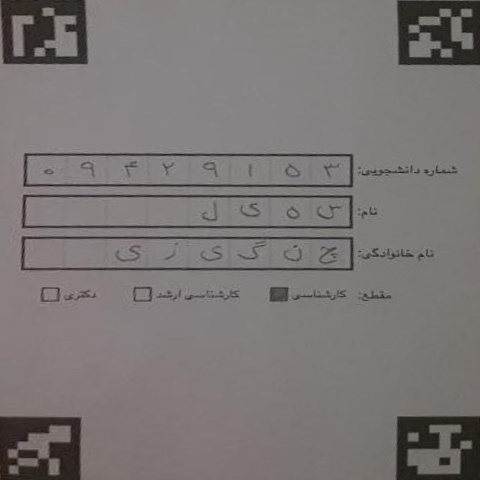 شماره دانشجویی: ۰ ۹ ۴ ۲ ۹ ۱ ۵ ۳
نام: س ه ی ل
نام خانوادگی: چ ن گ ی ز ی
مقطع: کارشناسی کارشناسی ارشد دکتری